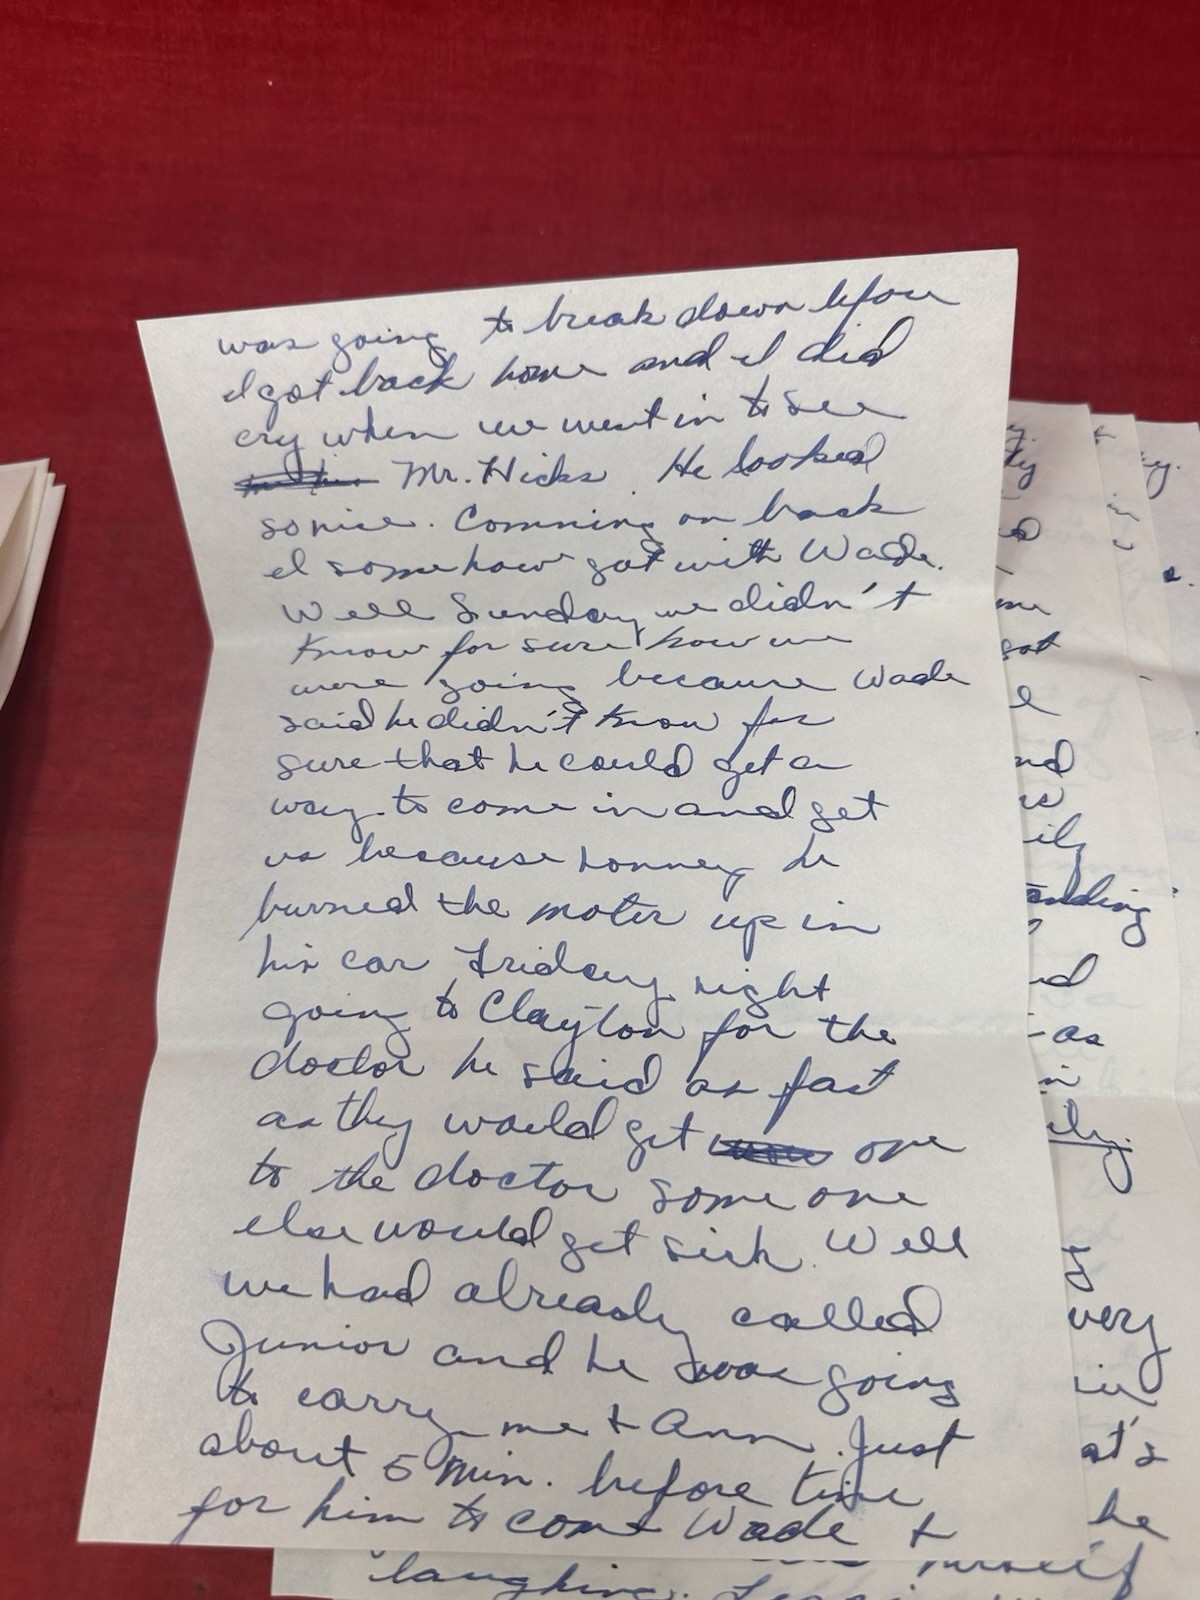 was going to break down before
I got back home and I did
cry when we went in to see
Mr. Hicks. He looked
so nice. Comming on back
I somehow got with Wade.
Well Sunday we didn't
know for sure how we
were going because Wade
said he didn't know for
sure that he could get a
way to come in and get
us because Lonney he
burned the moter up in
his car Friday night
going to Clayton for the
doctor he said as fast
as they would get one
to the doctor some one
else would get sick. Well
we had already called
Junior and he was going
to carry me + Ann. Just
about 5 min. before time
for him to come Wade +
laughing.
myself
got
nd
ily
anding
as
ily.
very
at's
he